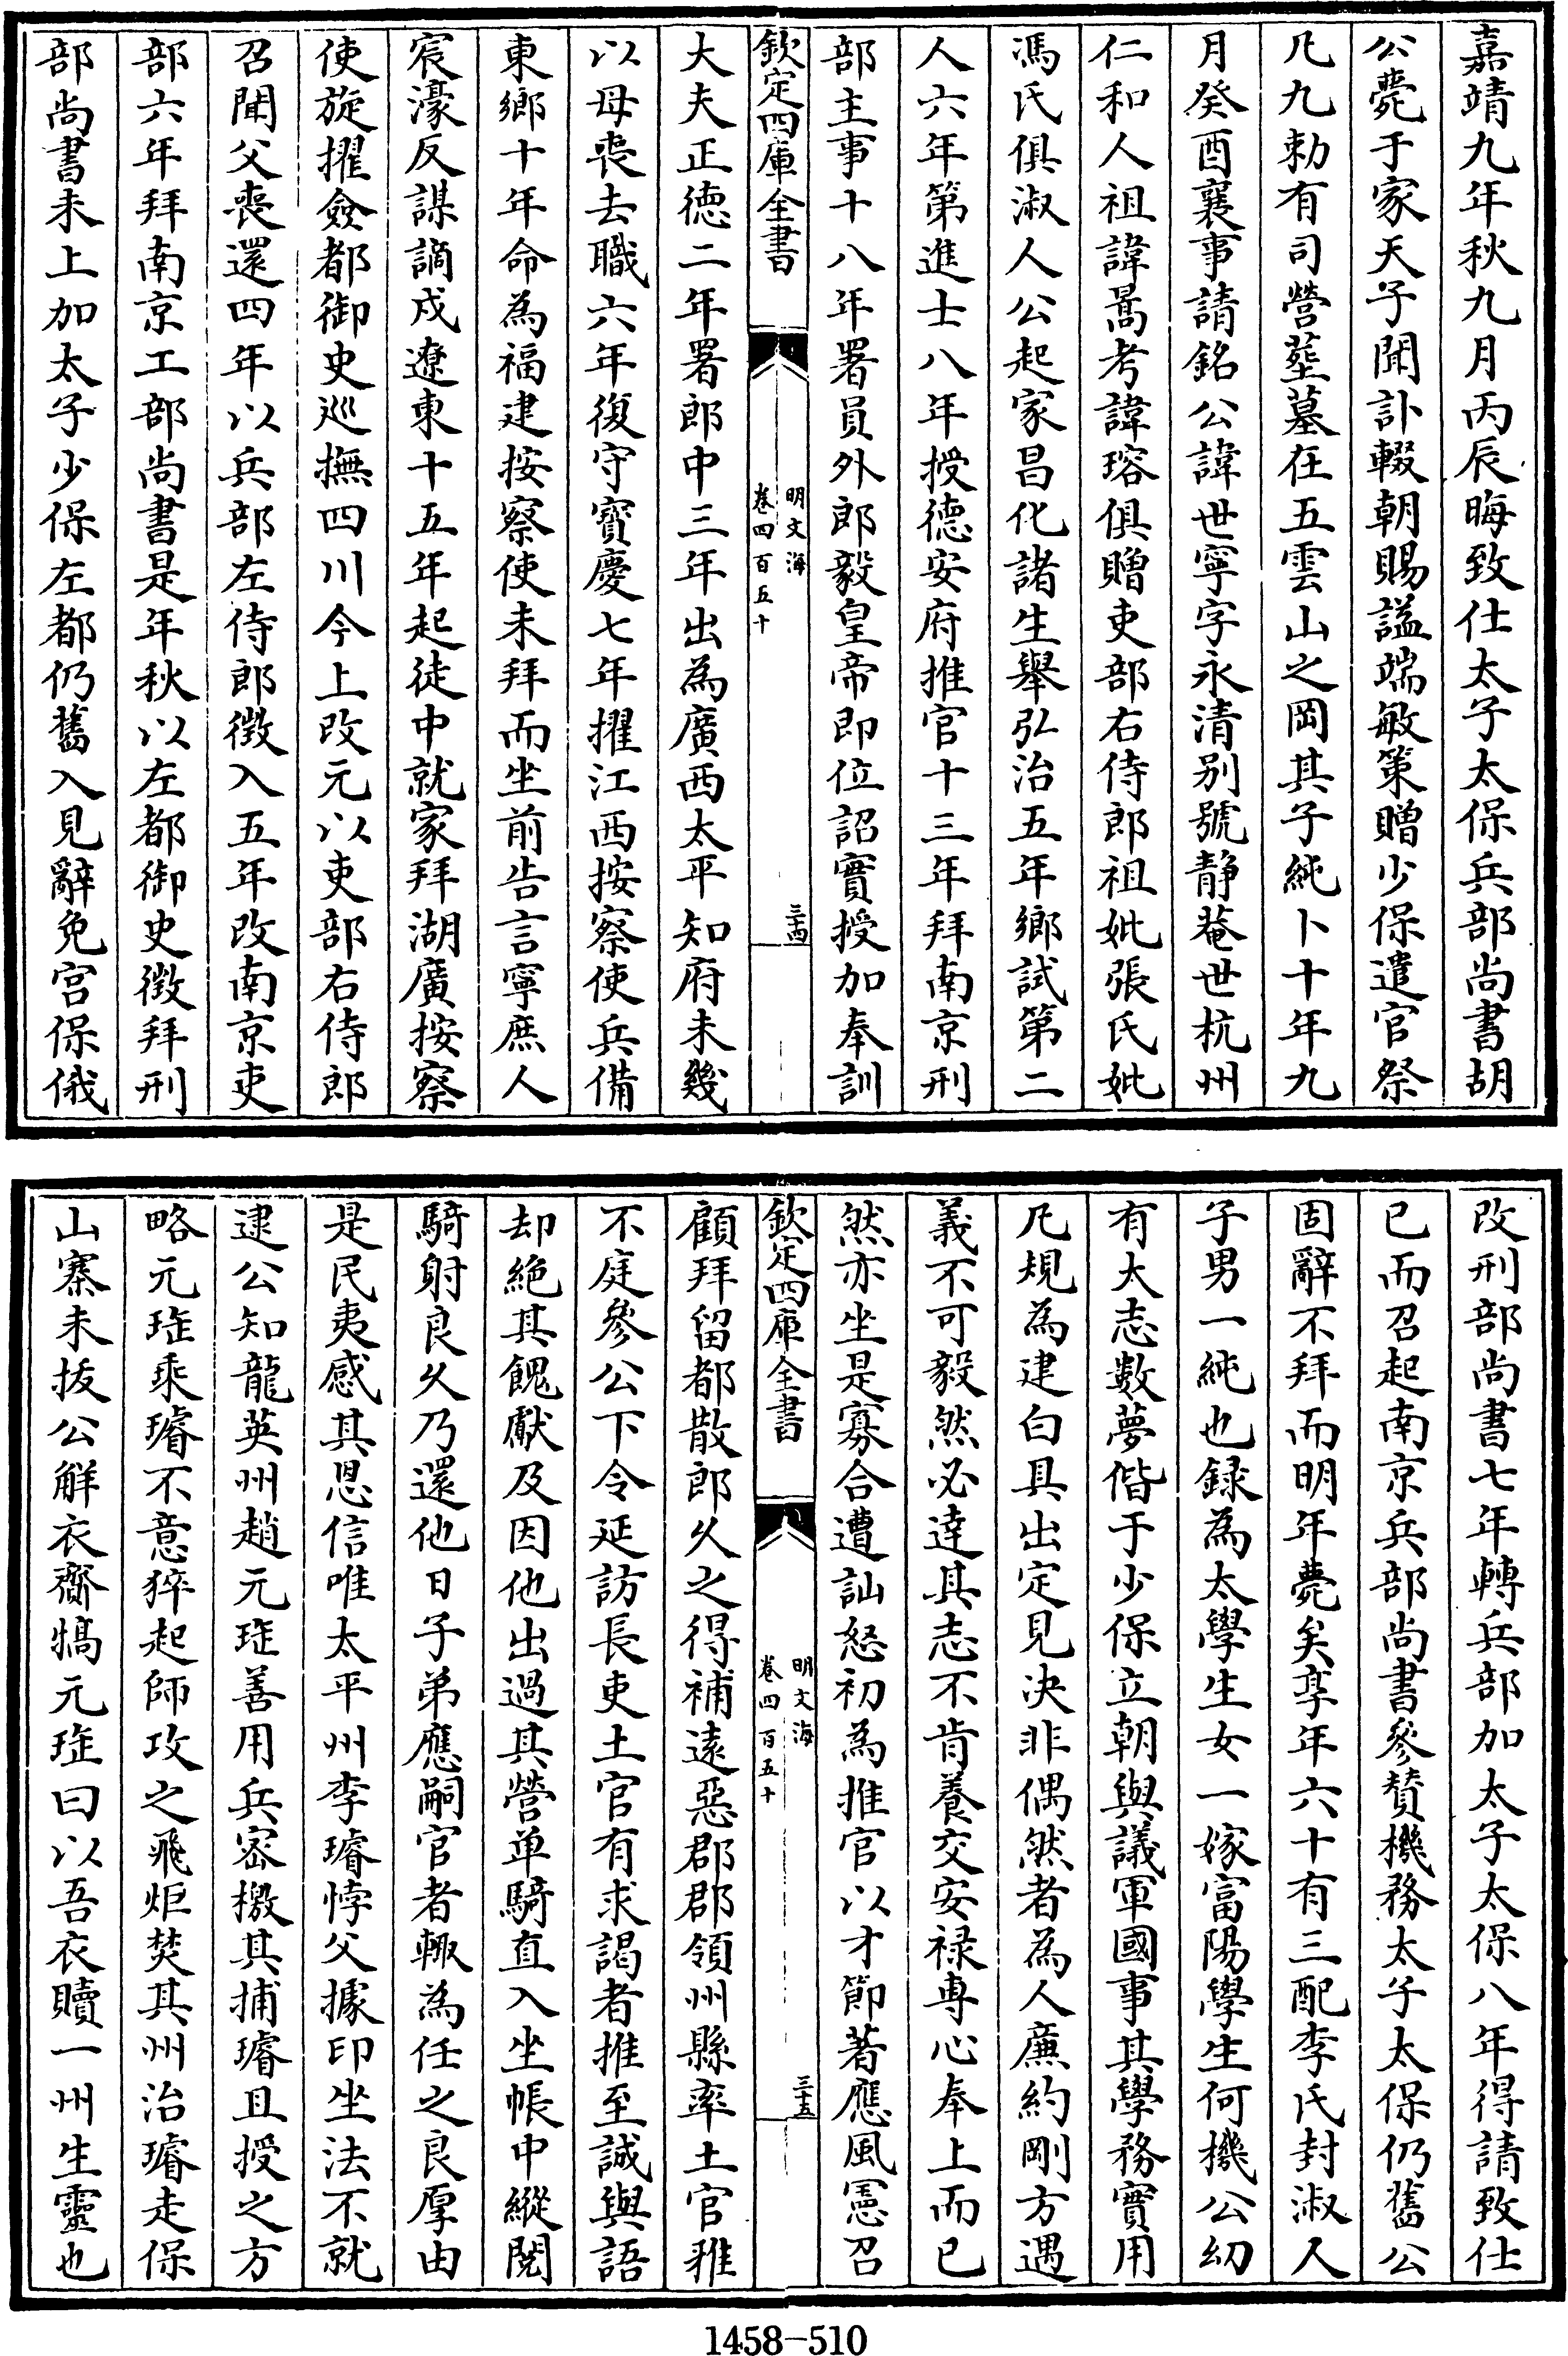 嘉靖九年秋九月丙辰晦致仕太子太保兵部尚書胡
公薨于家天子聞訃輟朝賜諡端敏策贈少保遣官祭
凡九勅有司營塟墓在五雲山之岡其子純卜十年九
月癸酉襄事請銘公諱世寧字永清别號静菴世杭州
仁和人祖諱暠考諱瑢俱贈吏部右侍郎祖妣張氏妣
馮氏俱淑人公起家昌化諸生舉弘治五年鄉試第二
人六年第進士八年授德安府推官十三年拜南京刑
部主事十八年署員外郎毅皇帝即位詔實授加奉訓
欽定四庫全書
明文海
卷四百五十
三十四
大夫正德二年署郎中三年出為廣西太平知府未幾
以母喪去職六年復守寳慶七年擢江西按察使兵備
東鄉十年命為福建按察使未拜而坐前告言寧庶人
宸濠反謀謫戍遼東十五年起徒中就家拜湖廣按察
使旋擢僉都御史巡撫四川今上改元以吏部右侍郎
召聞父喪還四年以兵部左侍郎徵入五年改南京吏
部六年拜南京工部尚書是年秋以左都御史徵拜刑
部尚書未上加太子少保左都仍舊入見辭免宫保俄
改刑部尚書七年轉兵部加太子太保八年得請致仕
已而召起南京兵部尚書參贊機務太子太保仍舊公
固辭不拜而明年薨矣享年六十有三配李氏封淑人
子男一純也録為太學生女一嫁富陽學生何機公幼
有太志數夢偕于少保立朝與議軍國事其學務實用
凡規為建白具出定見决非偶然者為人廉約剛方遇
義不可毅然必達其志不肯養交安禄專心奉上而已
然亦坐是寡合遭訕怒初為推官以才節著應風憲召
欽定四庫全書
明文海
卷四百五十
三十五
顧拜留都散郎久之得補遠惡郡郡領州縣率土官雅
不庭參公下令延訪長吏土官有求謁者推至誠與語
却絶其餽獻及因他出過其營单騎直入坐帳中縱閱
騎射良久乃還他日子弟應嗣官者輙為任之良厚由
是民夷感其恩信唯太平州李璿悖父據印坐法不就
逮公知龍英州趙元琁善用兵宻檄其捕璿且授之方
略元琁乘璿不意猝起師攻之飛炬焚其州治璿走保
山寨未拔公解衣齎犒元琁曰以吾衣贖一州生靈也
1458-510